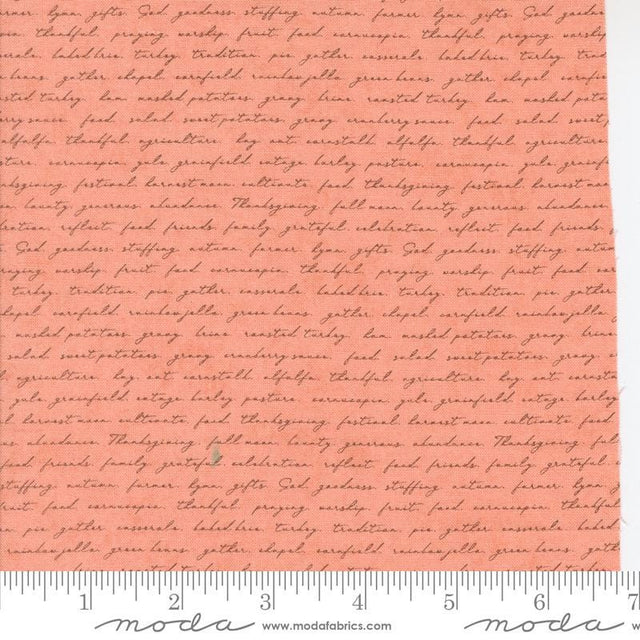 farmer. hymn. gifts. God. goodness. stuffing. autumn. farmer. hymn. gifts. God. goodne
thankful. praying. worship. fruit. food. cornucopia. thankful. praying. worship
casserole. baked brie. turkey. tradition. pie. gather. casserole. baked brie. turkey. trad
beans. gather. chapel. cornfield. rainbow jello. green beans. gather. chapel. cornfie
roasted turkey. ham. mashed potatoes. gravy. brine. roasted turkey. ham. mashed pota
cranberry sauce. food. salad. sweet potatoes. gravy. cranberry sauce. food. salad. sweet p
alfalfa. thankful. agriculture. hay. oat. cornstalk. alfalfa. thankful. agriculture
pasture. cornucopia. yule. grainfield. cottage. barley. pasture. cornucopia. yule. grainfi
thanksgiving. festival. harvest moon. cultivate. food. thanksgiving. festival. harvest moon
moon. bounty. generous. abundance. Thanksgiving. full moon. bounty. generous. abundance
celebration. reflect. food. friends. family. grateful. celebration. reflect. food. friends.
God. goodness. stuffing. autumn. farmer. hymn. gifts. God. goodness. stuffing. autum
praying. worship. fruit. food. cornucopia. thankful. praying. worship. fruit. food. cor
turkey. tradition. pie. gather. casserole. baked brie. turkey. tradition. pie. gather.
chapel. cornfield. rainbow jello. green beans. gather. chapel. cornfield. rainbow jello
mashed potatoes. gravy. brine. roasted turkey. ham. mashed potatoes. gravy. brine
salad. sweet potatoes. gravy. cranberry sauce. food. salad. sweet potatoes. gravy.
agriculture. hay. oat. cornstalk. alfalfa. thankful. agriculture. hay. oat. cornst
yule. grainfield. cottage. barley. pasture. cornucopia. yule. grainfield. cottage. barley
harvest moon. cultivate. food. thanksgiving. festival. harvest moon. cultivate. food
abundance. Thanksgiving. full moon. bounty. generous. abundance. Thanksgiving. full
food. friends. family. grateful. celebration. reflect. food. friends. family. grateful.
stuffing. autumn. farmer. hymn. gifts. God. goodness. stuffing. autumn. farmer. hymn
fruit. food. cornucopia. thankful. praying. worship. fruit. food. cornucopia. thankful
pie. gather. casserole. baked brie. turkey. tradition. pie. gather. casserole. baked
rainbow jello. green beans. gather. chapel. cornfield. rainbow jello. green beans. gath
1 2 3 4 5 6 7
moda www.modafabrics.com moda www.modafabrics.com moda